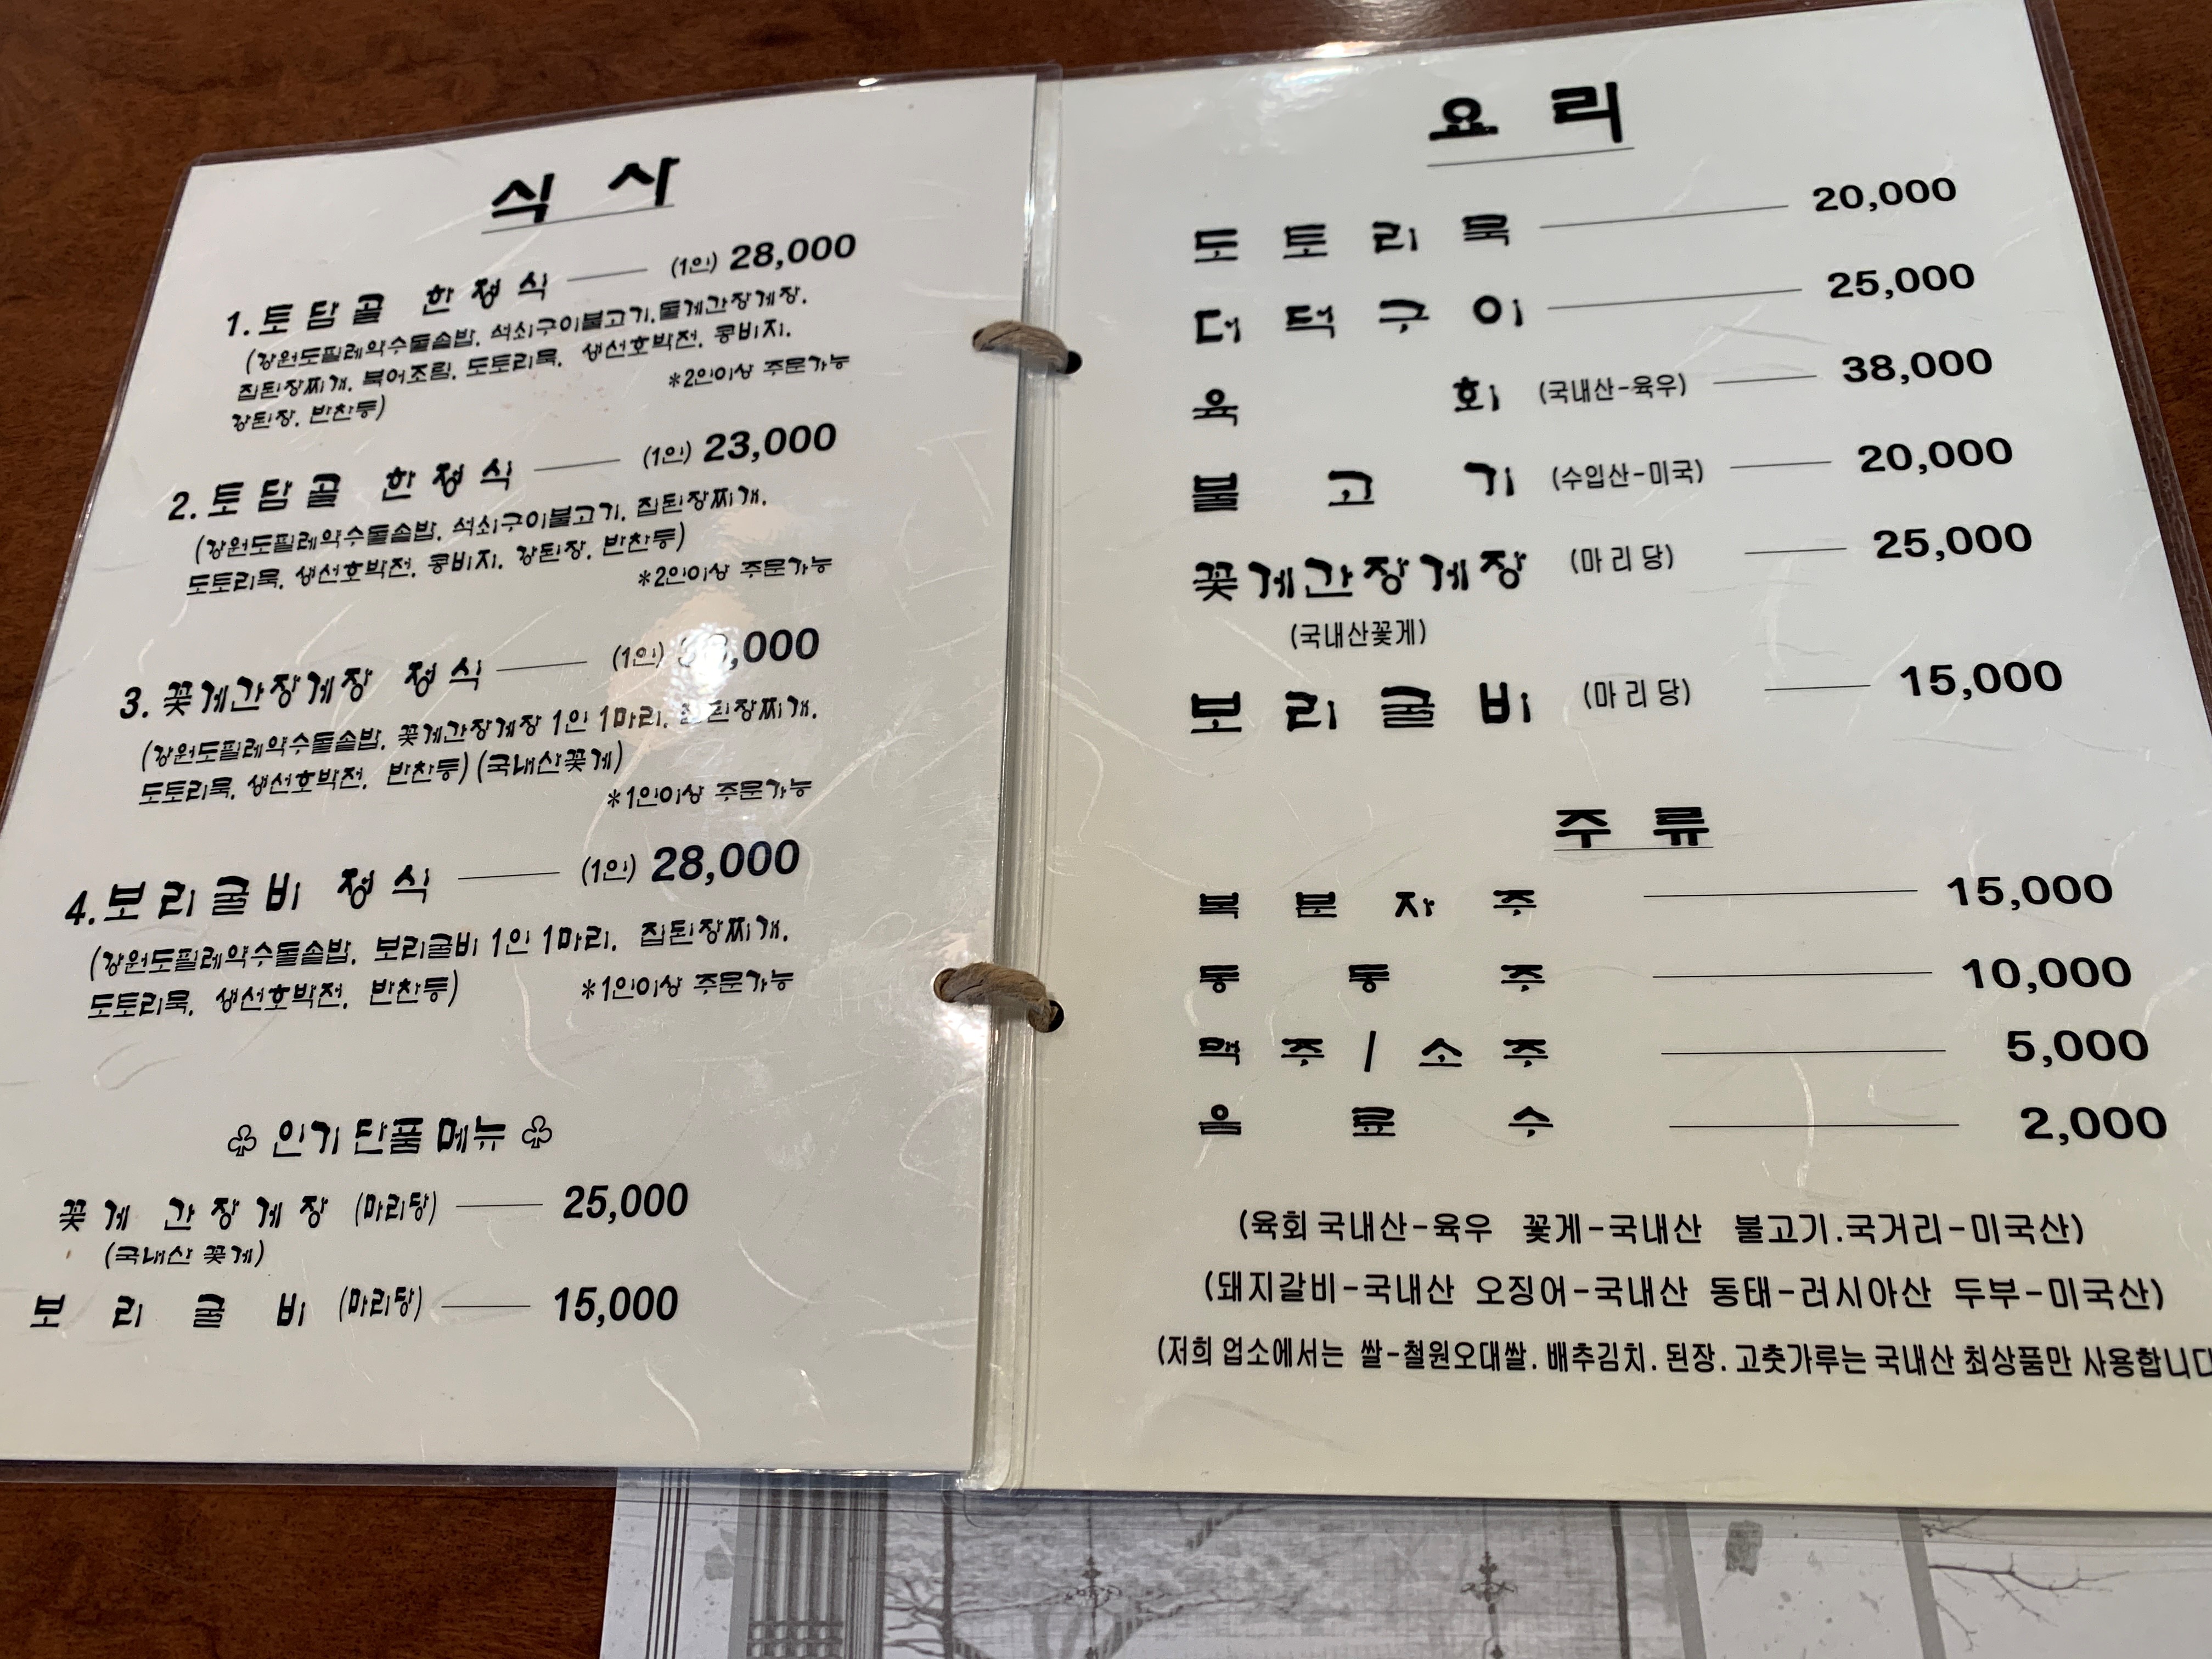 식 사
1. 토담골 한정식 (1인) 28,000
(강원도필레약수돌솥밥, 석쇠구이불고기, 돌게간장게장,
집된장찌개, 북어조림, 도토리묵, 생선호박전, 콩비지,
강된장, 반찬등)
*2인이상 주문가능
2. 토담골 한정식 (1인) 23,000
(강원도필레약수돌솥밥, 석쇠구이불고기, 집된장찌개,
도토리묵, 생선호박전, 콩비지, 강된장, 반찬등)
*2인이상 주문가능
3. 꽃게간장게장 정식 (1인)
(강원도필레약수돌솥밥, 꽃게간장게장 1인 1마리, 집된장찌개,
도토리묵, 생선호박전, 반찬등) (국내산꽃게)
*1인이상 주문가능
4. 보리굴비 정식 (1인) 28,000
(강원도필레약수돌솥밥, 보리굴비 1인 1마리, 집된장찌개,
도토리묵, 생선호박전, 반찬등)
*1인이상 주문가능
♧ 인기단품메뉴 ♧
꽃게 간장게장 (마리당) 25,000
(국내산 꽃게)
보리굴비 (마리당) 15,000
요 리
도토리묵 20,000
더덕구이 25,000
육회 (국내산-육우) 38,000
불고기 (수입산-미국) 20,000
꽃게간장게장 (마리당) 25,000
(국내산꽃게)
보리굴비 (마리당) 15,000
주 류
복분자주 15,000
동동주 10,000
맥주/소주 5,000
음료수 2,000
(육회 국내산-육우 꽃게-국내산 불고기.국거리-미국산)
(돼지갈비-국내산 오징어-국내산 동태-러시아산 두부-미국산)
(저희 업소에서는 쌀-철원오대쌀. 배추김치. 된장. 고춧가루는 국내산 최상품만 사용합니다